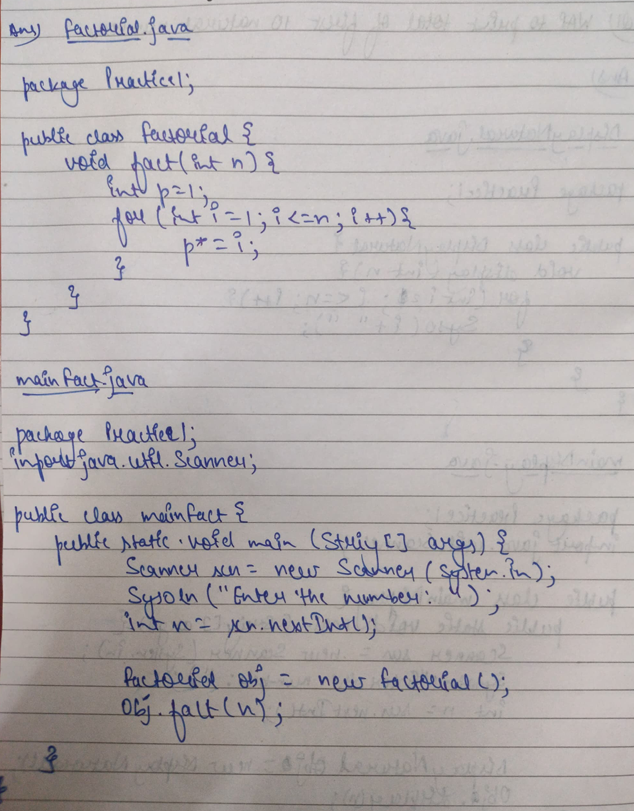 Ans) factorial.java
package Practice1;
public class factorial {
void fact(int n) {
int p=1;
for (int i=1; i<=n; i++){
p*=i;
}
}
}
mainfact.java
package Practice1;
import java.util.Scanner;
public class mainfact {
public static void main (String[] args) {
Scanner scn = new Scanner (System.in);
Sysoln ("Enter the number: ");
int n = scn.nextInt();
factorial obj = new factorial ();
obj.fact(n);
}
}